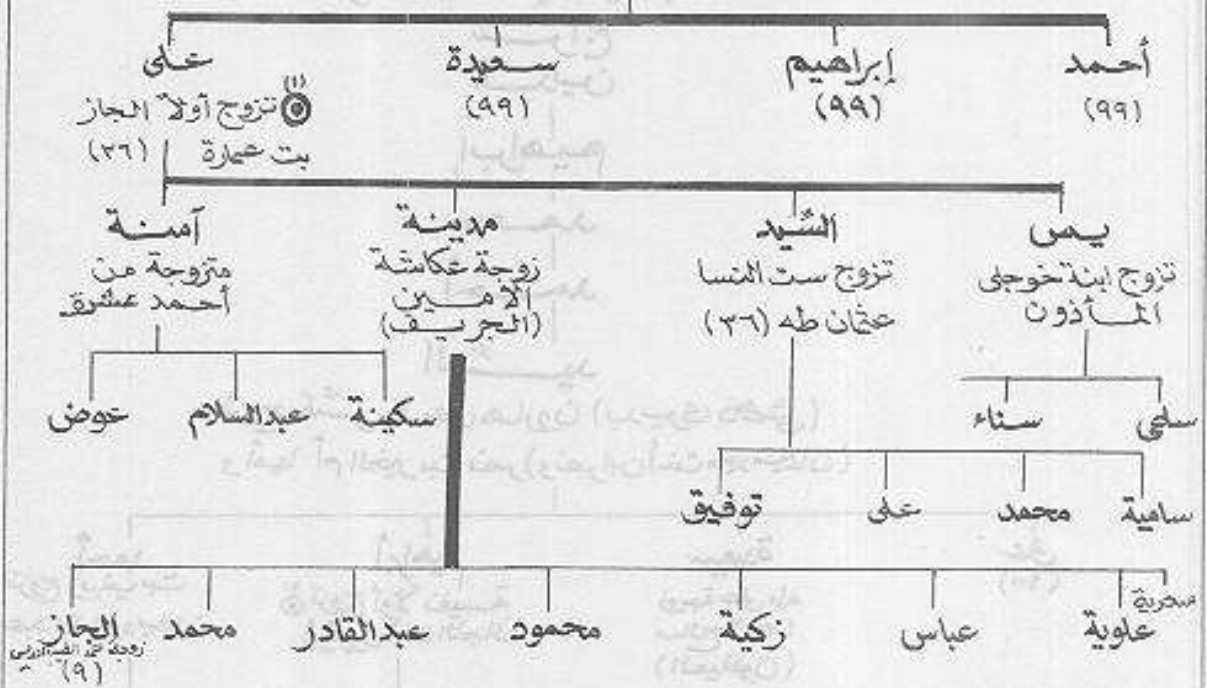 أحمد
(٩٩)
إبراهيم
(٩٩)
سعيدة
(٩٩)
على
(١)
تزوج أولاً الجاز
بت عمارة (٣٦)
يس
تزوج ابنة خوجلى
المأذون
السّيد
تزوج ست النسا
عثمان طه (٣٦)
مدينة
زوجة عكاشة
الأمين
(الجريف)
آمنة
متزوجة من
أحمد عشرة
سلمى
سناء
سكينة
عبدالسلام
عوض
سامية
محمد
على
توفيق
علوية
عباس
زكية
محمود
عبدالقادر
محمد
الجاز
زوجة
(٩)